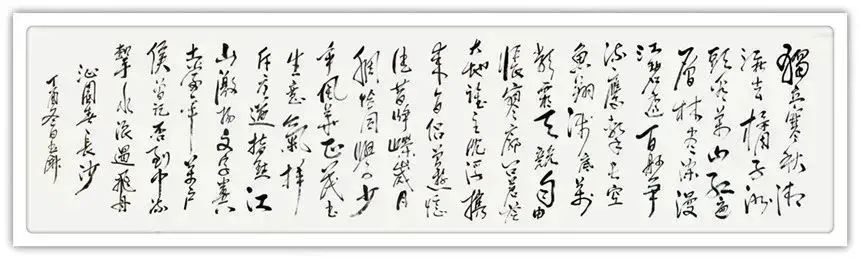 獨立寒秋湘
江北去橘子洲
頭看萬山紅遍
層林盡染漫
江碧透百舸爭
流鷹擊長空
魚翔淺底萬
類霜天競自由
悵寥廓問蒼茫
大地誰主沉浮攜
來百侶曾遊憶
往昔崢嶸歲月
稠恰同學少
年風華正茂書
生意氣揮
斥方遒指點江
山激揚文字糞
土當年萬戶
侯曾記否到中流
擊水浪遏飛舟
沁園春長沙
丁酉冬日